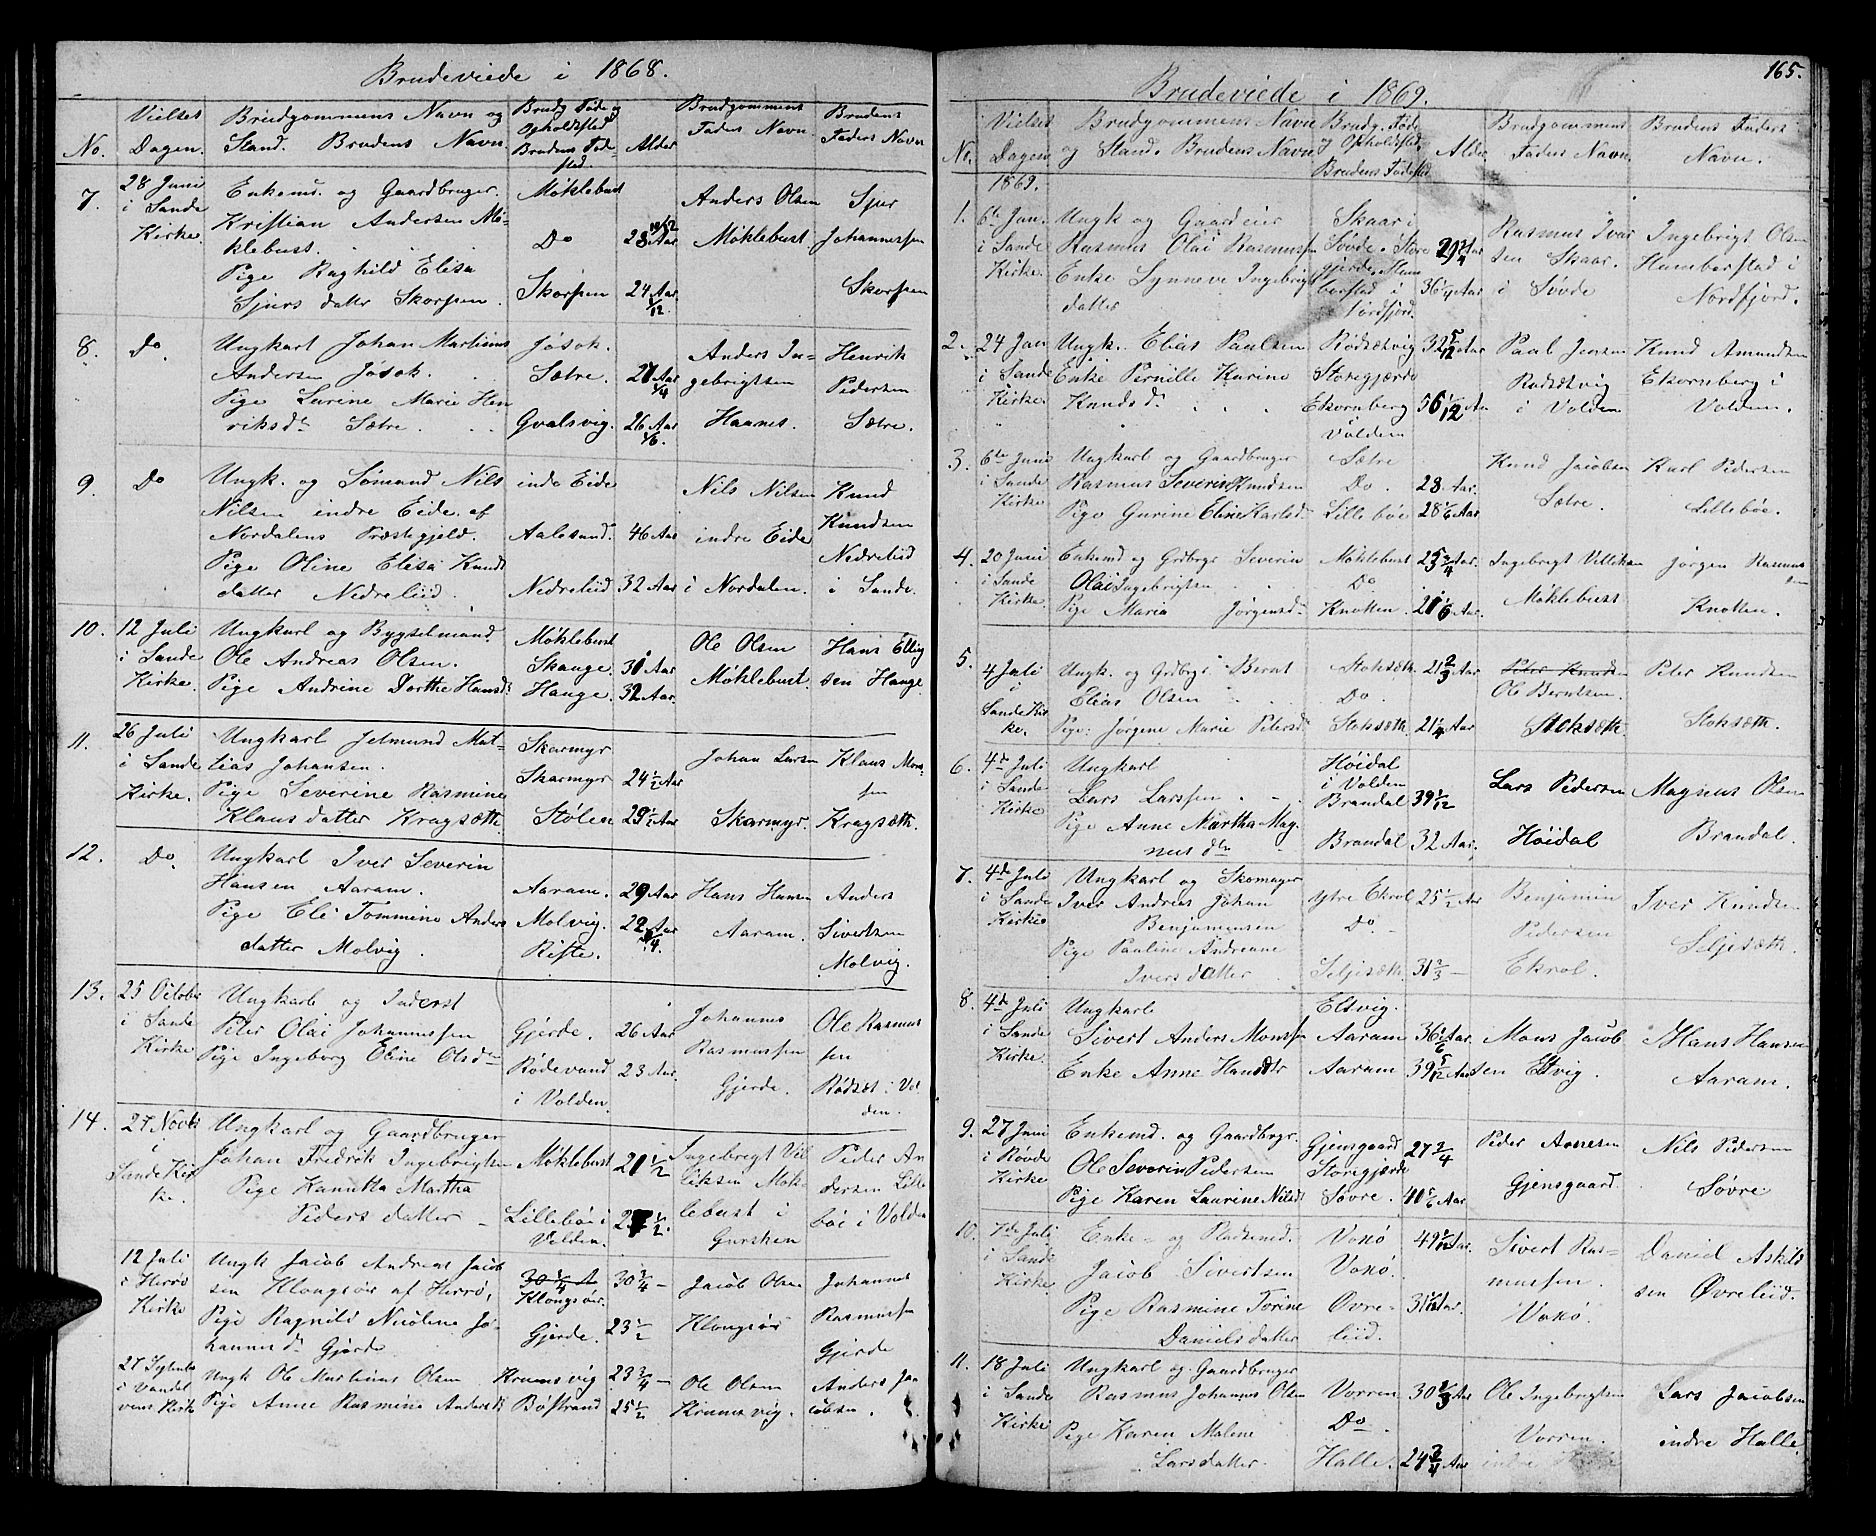 Brudeviede i 1868.
No. Vielses Dagen. Brudgommens Navn og Stand. Brudens Navn. Brudg Føde og Opholdsted Brudens Fødested. Alder Brudgommens Faders Navn. Brudens Faders Navn
7. 28 Juni i Sande Kirke. Enkemd. og Gaardbruger.
Kristian Andersen Mø-
klebust. Møklebust Do 28 10/12 Aar Anders Olsen Møklebust
Pige Raghild Elisa
Sjurs datter Skorpen. Skorpen 24 Aar 1/12. Sjur Johannessen Skorpen
8. Do. Ungkarl Johan Martinus
Andersen Jøsok. Jøsok. Sætre. 21 Aar 1/4 Anders In-
gebrigtsen Haanes.
Pige Lurene Marie Hen
riksdr Sætre. Gvalsvig. 26 Aar 1/6. Henrik Pedersen Sætre.
9. Do Ungk. og Sømand Nils
Nilsen indre Eide. af
Nordalens Præstegjeld. indre Eide Aalesund. 46 Aar Nils Nilsen indre Eide i Nordalen.
Pige Oline Elisa Knuds
datter Nedreliid. Nedreliid 32 Aar Knud Knudsen Nedreliid i Sande.
10. 12 Juli i Sande Kirke. Ungkarl og Bygselmand
Ole Andreas Olsen. Møklebust Skange. 30 Aar Ole Olsen Møklebust.
Pige Andrine Dorthe Hansd. Hauge. 32 Aar. Hans Ellingsen Hauge
11. 26 Juli i Sande Kirke. Ungkarl Jetmund Mat-
tias Johansen. Skarmyr Skarmyr 24 1/2 Aar Johan Larsen Skarmyr.
Pige Severine Rasmine
Klausdatter Kragsæth. Stølen 29 1/2 Aar Klaus Monsen Kragsæth.
12. Do. Ungkarl Iver Severin
Hansen Aaram. Aaram. 29 Aar Hans Hansen Aaram.
Pige Eli Tommine Anders
datter Molvig. Molvig. Riste. 22 Aar 3/4. Anders Sivertsen Molvig.
13. 25 October i Sande Kirke Ungkarl og Inderst
Peter Olai Johannessen Gjerde. 26 Aar Johannes Rasmussen Gjerde.
Pige Ingeborg Eline Olsdr Rødevand i Volden. 23 Aar. Ole Rasmussen Rødset i Volden.
14. 27 Novbr i Sande Kirke. Ungkarl og Gaardbruger
Johan Fredrik Ingebrigtsen Møklebust 21 1/2 Ingebrigt Villiksen Møklebust i Gursken
Pige Kanutta Martha
Peders datter Lillebøe i Volden. 27 1/2. Peder Andersen Lillebøe i Volden
12 Juli i Herrø Kirke Ungk Jacob Andreas Jacob
sen Klongsøir af Herrø, Klongsøir. 30 3/4 Jacob Olsen Klongsøir
Pige Ragnild Nicoline Jo-
hannesdr Gjerde Gjerde. 23 1/2 Johannes Rasmussen Gjerde
27 Septbr i Vandelvens Kirke Ungk Ole Martinus Olsen Krumsvig 23 3/4 Ole Olsen Krumsvig.
Pige Anne Rasmine Andersd. Bøstrand 25 1/2 Anders Jacobsen.
165.
Brudeviede i 1869.
No. Vielses Dagen Brudgommens Navn og Stand. Brudens Navn Brudg. Føde og Opholdsted. Brudens Fødested Alder Brudgommens Faders Navn. Brudens Faders Navn.
1869.
1. 6te Jan. i Sande Kirke. Ungk og Gaardeier
Rasmus Olai Rasmussen Skaar i Søvde. Storegjerde. 29 3/4 Aar Rasmus Ivarsen Skaar. i Søvde
Enke Synneve Ingebrigts
datter Humberstad i Nordfjord. 36 1/4 Aar Ingebrigt Olsen Humberstad i Nordfjord.
2. 24 Jan i Sande Kirke. Ungk. Elias Paulsen Rødsætvig Storegjærde 32 5/12 Aar Paul Jensen Rødsætvig i Volden
Enke Pernille Karine
Knudsd. Ekornberg Volden 56 1/12 Aar Knud Amundsen Ekornberg i Volden.
3. 6te Juni i Sande Kirke. Ungkarl og Gaardbruger
Rasmus Severin Knudsen Sætre Do. 28 Aar. Knud Jacobsen Sætre.
Pige Gurine Eline Karlsd. Lillebøe 28 1/6 Aar Karl Pedersen Lillebøe.
4. 20 Juni i Sande Kirke. Enkemd og Grdbrgr Severin
Olai Ingebrigtsen Møklebust Do. 25 3/4 Aar. Ingebrigt Villiksen Møklebust
Pige Maria Jørgensd. Knotten. 21 1/6 Aar. Jørgen Rasmussen Knotten.
5. 4 Juli i Sande Kirke. Ungk. og Grdbrgr Bernt
Elias Olsen Stoksæth. Do. 21 2/3 Aar ~~Peter Knudsen~~ Ole Berntsen. Stoksæth.
Pige: Jørgene Marie Petersdr Stoksæth 21 1/4 Aar Peter Knudsen Stoksæth.
6. 4de Juli i Sande Kirke Ungkarl
Lars Larssen Høidal i Volden Brandal 39 1/12 Lars Pedersen Høidal
Pige Anne Martha Mag-
nus dtr Brandal 32 Aar. Magnus Olsen Brandal.
7. 4de Juli i Sande Kirke Ungkarl og Skomager
Iver Andreas Johan
Benjaminsen ytre Ekrol Do. 25 1/2 Aar Benjamin Pedersen Ekrol.
Pige Pauline Andreane
Ivers datter Seljesæth. 31 2/3 Iver Knudsen Seljesæth.
8. 4de Juli i Sande Kirke. Ungkarl
Sivert Anders Monssen Eltvig. Aaram 36 1/6 Aar. Mons Jacobsen Eltvig.
Enke Anne Hansdtr Aaram 39 5/12 Aar Hans Hansen Aaram.
9. 27 Juni i Røvde Kirke Enkemd. og Gaardbrgr.
Ole Severin Pedersen Gjensgaard Storegjærde 27 3/4 Peder Annesen Gjensgaard
Pige Karen Laurine Nilsd. Søvre. 40 5/6 Aar Nils Pedersen Søvre
10. 7de Juli i Sande Kirke Enke- og Pladsemd.
Jacob Sivertsen Voxø Voxø. 49 1/12 Aar. Sivert Rasmussen. Voxø.
Pige Rasmine Torine
Daniels datter Øvreliid. 31 1/12 Aar. Daniel Askildsen Øvreliid.
11. 18 Juli i Sande Kirke Ungkarl og Gaardbruger
Rasmus Johannes Olsen Vorren Do. 30 1/3 Aar Ole Ingebrigtsen Vorren.
Pige Karen Malene
Larsdatter. Halle. 24 3/4 Aar Lars Jacobsen indre Halle.